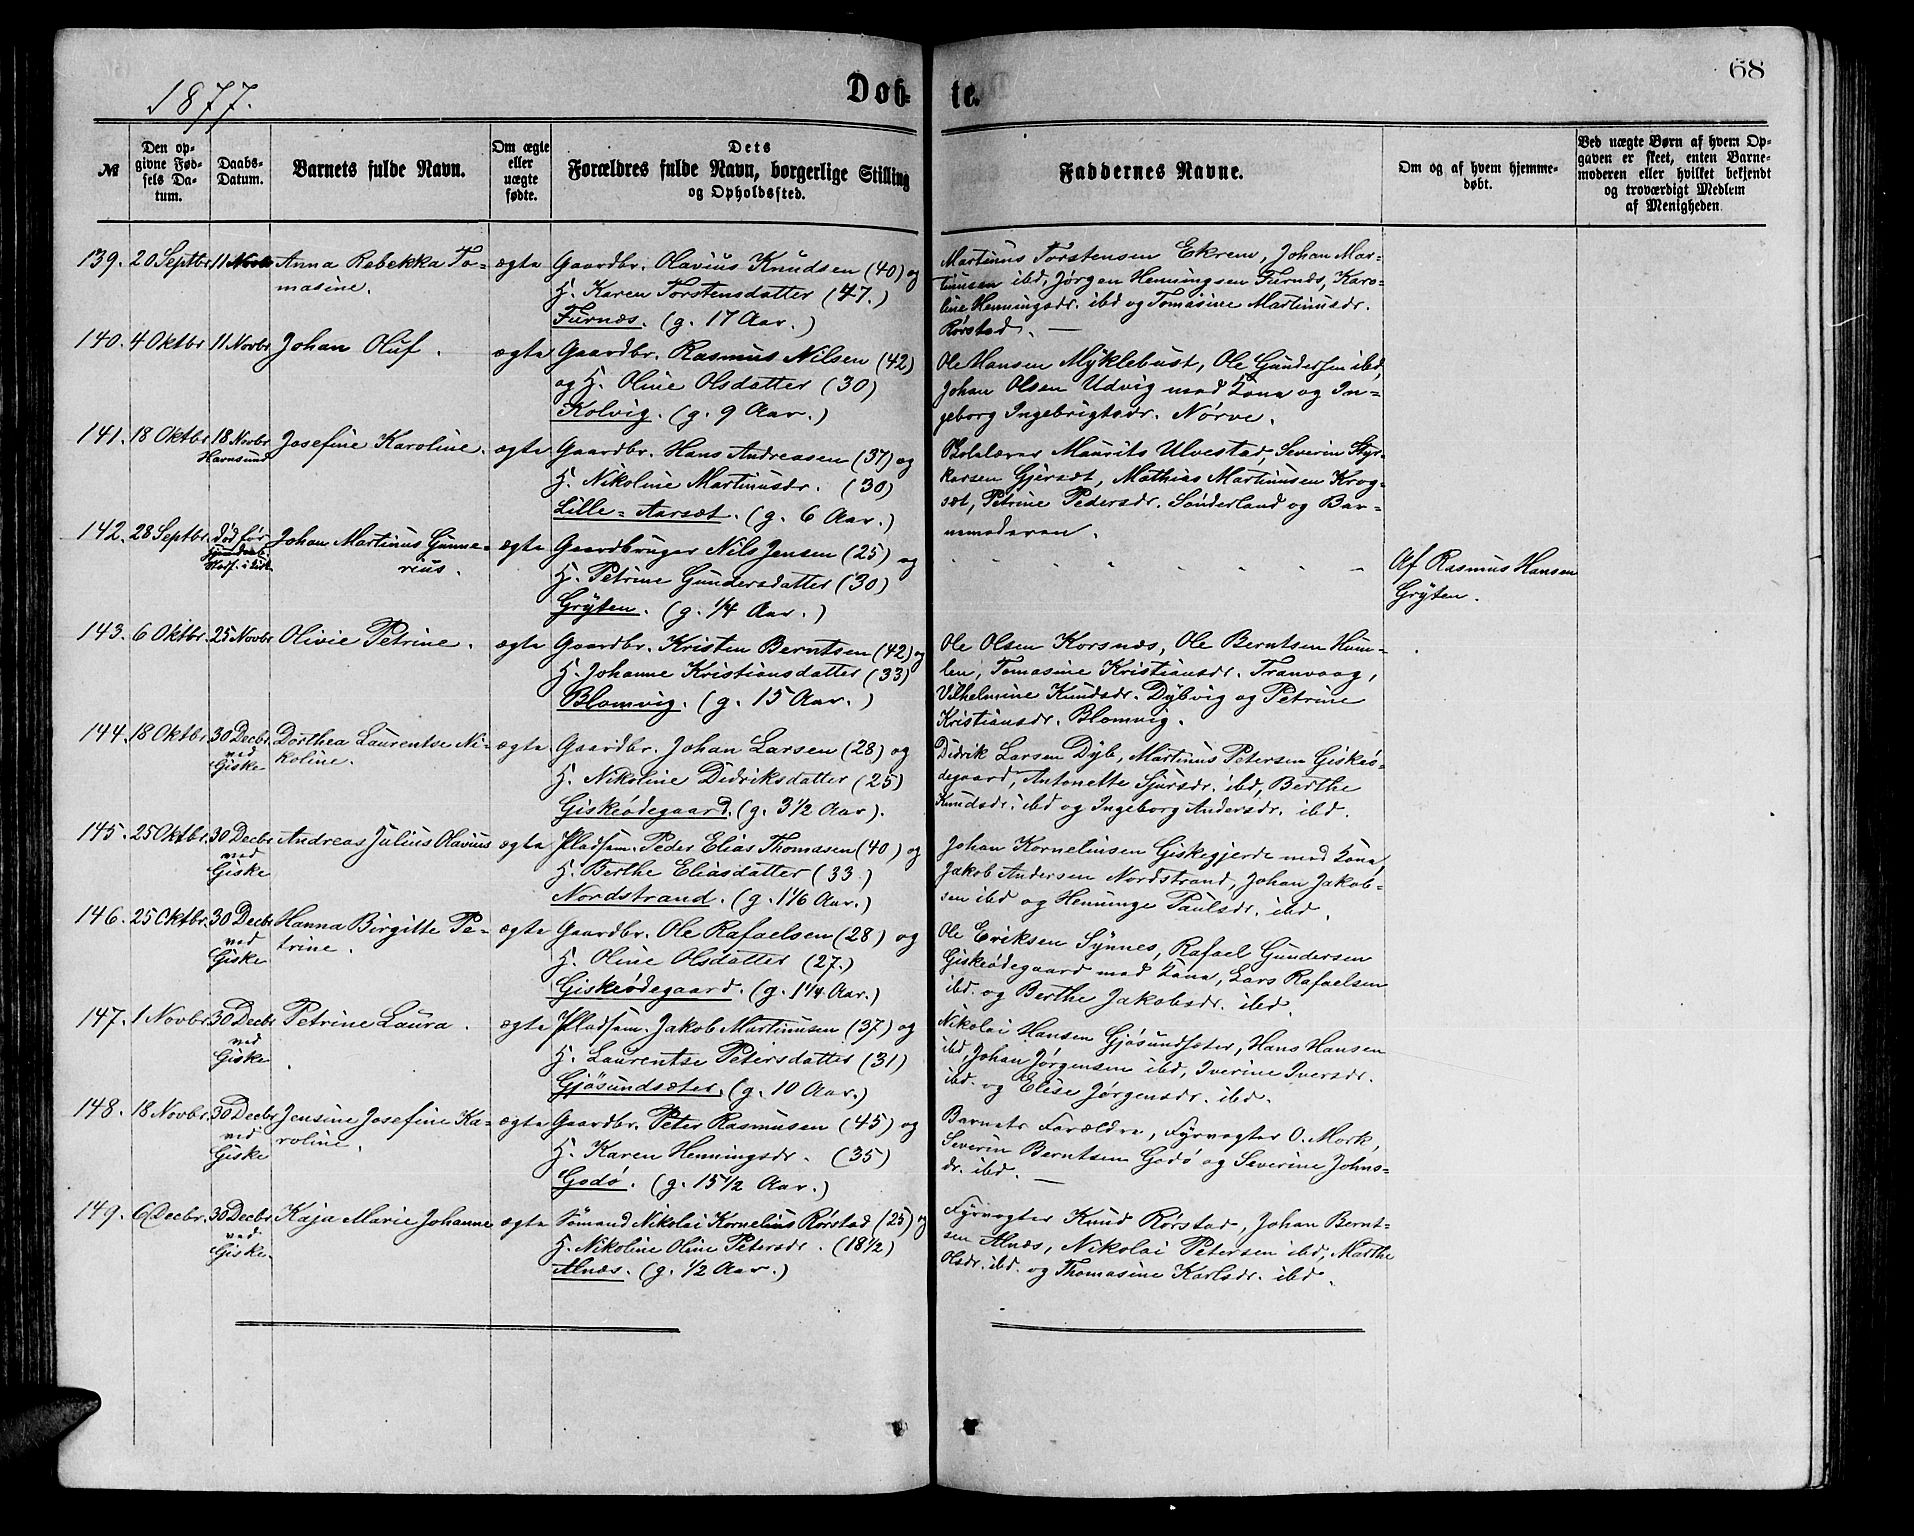 1877.
Døb-
te.
68
№
Den op-
givne Fød-
sels Da-
tum.
Daabs-
Datum.
Barnets fulde Navn.
Om ægte
eller
uægte
fødte.
Dets
Forældres fulde Navn, borgerlige Stilling
og Opholdssted.
Faddernes Navne.
Om og af hvem hjemme-
døbt.
Ved uægte Børn af hvem Op-
gaven er skeet, enten Barne-
moderen eller hvilket bekjendt
og troværdigt Medlem
af Menigheden.
139. 20 Septbr 11 Novbr Anna Rebekka To-
masine.
ægte
Gaardbr. Olavius Knudsen (40) og
H. Karen Torstensdatter (47.)
Furnæs. (g. 17 Aar.)
Martinus Torstensen Ekrem, Johan Mar-
tinusen ibd, Jørgen Henningsen Furnæs, Karo-
line Henningsdr. ibd og Tomasine Martinusdr.
Rørstad. —
140. 4 Oktbr 11 Novbr Johan Oluf.
ægte
Gaardbr. Rasmus Nilsen (42)
og H. Oline Olsdatter (30)
Kolvig. (g. 9 Aar.)
Ole Hansen Myklebust, Ole Gundersen ibd,
Johan Olsen Udvig med Kona og In-
geborg Ingebrigtsdr. Nørve.
141. 18 Oktbr 18 Novbr Josefine Karoline.
Havnsund
ægte
Gaardbr. Hans Andreasen (37) og
H. Nikoline Martinusdr. (30)
Lille-Aarsæt. (g. 6 Aar.)
Skolelærer Maurits Ulvestad, Severin Styr-
karsen Gjersæt, Mathias Martinusen Krog-
sæt, Petrine Pedersdr. Sønderland og Bar-
nemoderen.
142. 28 Septbr. død før Johan Martinus Gunne-
rius.
ægte
Gaardbruger Nils Jensen (25) og
H. Petrine Gundersdatter (30)
Gryten. (g. 1/4 Aar.)
Af Rasmus Hansen
Gryten.
143. 6 Oktbr. 25 Novbr Olivie Petrine.
ægte
Gaardbr. Kristen Berntsen (42) og
H. Johanne Kristiansdatter (33)
Blomvig. (g. 15 Aar.)
Ole Olsen Korsnæs, Ole Berntsen Hum-
len, Tomasine Kristiansdr. Tranvaag,
Vilhelmine Knudsdr. Dybvig og Petrine
Kristiansdr. Blomvig.
144. 18 Oktbr. 30 Decbr. Dorthea Laurentse Ni-
ved
Giske
koline.
ægte
Gaardbr. Johan Larsen (28) og
H. Nikoline Didriksdatter (25)
Giskeødegaard. (g. 3 1/2 Aar).
Didrik Larsen Dyb, Martinus Petersen Giskeø-
degaard, Antonette Sjursdr. ibd, Berthe
Knudsdr. ibd og Ingeborg Andersdr. ibd.
145. 25 Oktbr. 30 Decbr Andreas Julius Olavius
ved
Giske
ægte
Pladsm. Peder Elias Thomasen (40) og
H. Berthe Eliasdatter (33.)
Nordstrand. (g. 1 1/6 Aar.)
Johan Kornelinsen Giskegjerde med Kona,
Jakob Andersen Nordstrand, Johan Jakob-
sen ibd og Henninge Paulsdr. ibd.
146. 25 Oktbr. 30 Decbr Hanna Birgitte Pe-
ved
Giske
trine.
ægte
Gaardbr. Ole Rafaelsen (28) og
H. Oline Olsdatter (27.)
Giskeødegaard. (g. 1 1/4 Aar.)
Ole Eriksen Synnes, Rafael Gundersen
Giskeødegaard med Kona, Lars Rafaelsen
ibd. og Berthe Jakobsdr. ibd.
147. 1 Novbr. 30 Decbr Petrine Laura.
ved
Giske
ægte
Pladsm. Jakob Martinusen (37) og
H. Laurentse Petersdatter (31)
Gjøsundsæter. (g. 10 Aar.)
Nikolai Hansen Gjøsundsæter, Hans Hansen
ibd, Johan Jørgensen ibd, Iverine Iversdr.
ibd. og Elise Jørgensdr. ibd.
148. 18 Novbr. 30 Decbr Jensine Josefine Ka-
ved
Giske
roline.
ægte
Gaardbr. Peter Rasmusen (45) og
H. Karen Henningsdr. (35)
Godø. (g. 15 1/2 Aar.)
Barnets Forældre, Fyrvogter O. Mork,
Severin Berntsen Godø og Severine Johns-
dr. ibd. —
149. 6 Decbr. 30 Decbr Kaja Marie Johanne
ved
Giske.
ægte
Sømand Nikolai Kornelius Rørstad (25) og
H. Nikoline Oline Petersdr. (18 1/2)
Alnæs. (g. 1/2 Aar.)
Fyrvogter Knud Rørstad, Johan Bernt-
sen Alnæs, Nikolai Petersen ibd, Marthe
Olsdr. ibd. og Thomasine Karlsdr. ibd.